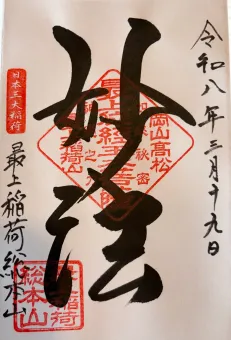 令和八年三月十九日
妙法
岡山高松
最上位経王大菩薩
日本三大稲荷
最上稲荷総本山
最上稲荷
総本山